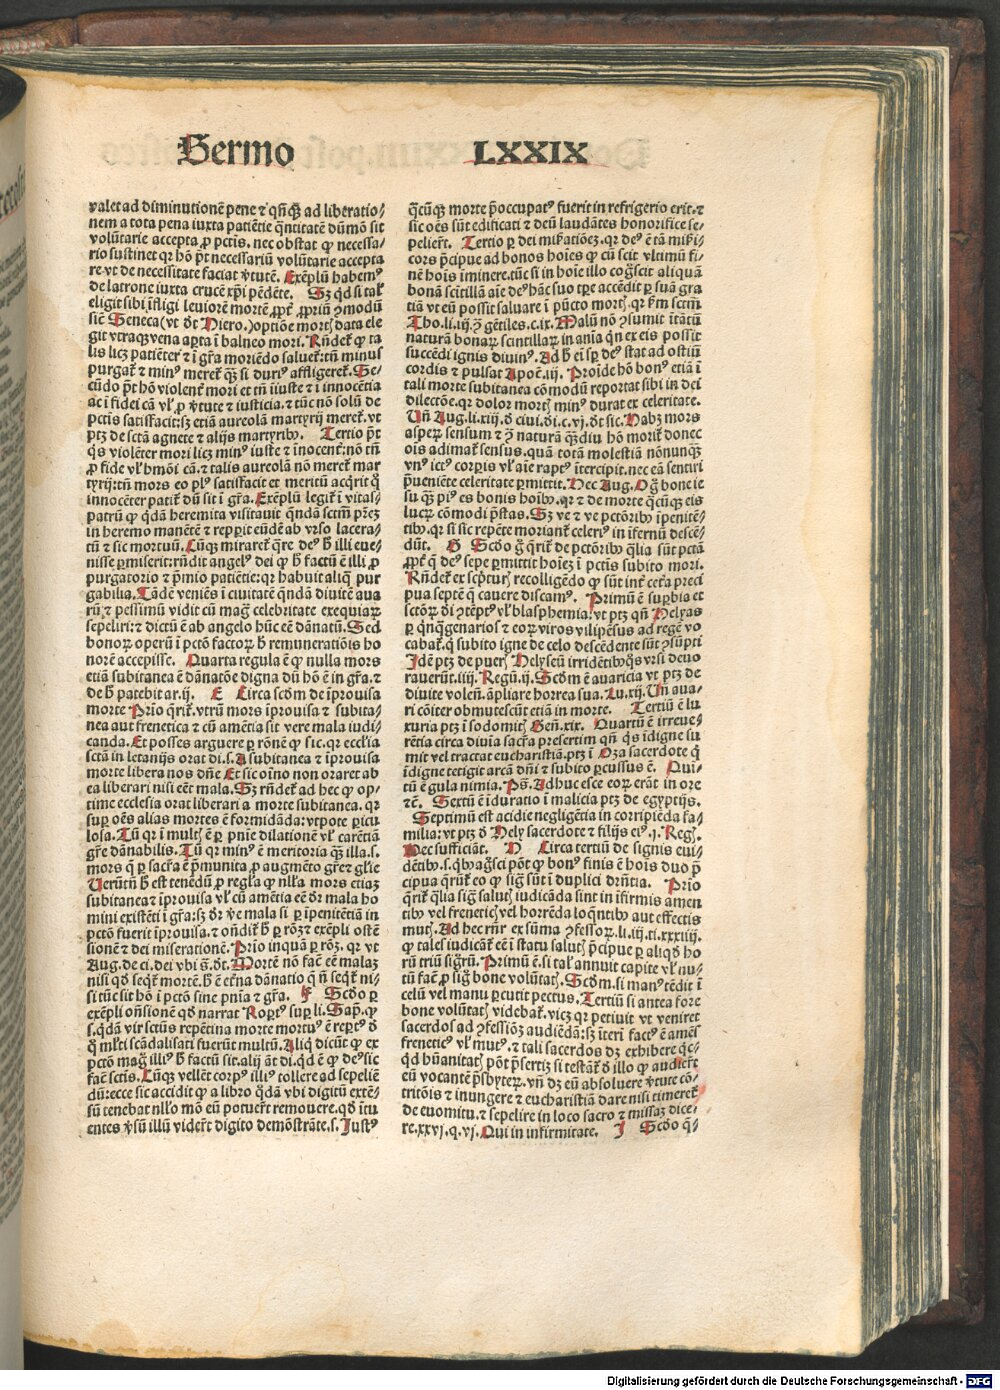 Sermo LXXIX
valet ad diminutionē pene ⁊ qn̄qȝ ad liberatio⸗
nem a tota pena iuxta patiētie q̄ntitatē dūmō sit
volūtarie accepta ꝓ pctīs. nec obstat ꝙ necessa⸗
rio sustinet qꝛ hō pt̄ necessariū volūtarie accepta
re vt de necessitate faciat v̄tutē. Exēplū habemꝰ
de latrone iuxta crucē xp̄i pēdēte. Sȝ qd si tal'
eligit sibi īfligi leuiorē mortē ꝓpt' ꝓpriū ꝯmodū
sic̄ Seneca (vt dt̄ Piero.) optiōe mortꝭ data ele
git vtraqȝ vena apta ī balneo mori. Rn̄det̄ ꝙ ta
lis licȝ patiēter ⁊ ī gr̄a moriēdo saluet̄: tn̄ minus
purgat̄ ⁊ minꝰ meret̄ qȝ si duriꝰ affligeret̄. Se⸗
cūdo pt̄ hō violent' mori et tn̄ iniuste ⁊ ī innocētia
ac ī fidei cā vl' ꝓ v̄tute ⁊ iusticia. ⁊ tūc nō solū de
pctīs satisfacit: sȝ etiā aureolā martyrij meret̄. vt
ptȝ de sctā agnete ⁊ alijs martyribꝰ. Tertio pt̄
qs violēter mori licȝ minꝰ iuste ⁊ īnocent': nō tn̄
ꝓ fide vl' hmōi cā. ⁊ talis aureolā nō meret̄ mar
tyrij: tn̄ mors eo plꝰ satisfacit et meritū acq̄rit q̄
innocēter patit̄ dū sit ī gr̄a. Exēplū legit̄ ī vitas⸗
patrū ꝙ q̄dā heremita visitauit quēdā sctm̄ p̄rēȝ
in heremo manētē ⁊ repperit eūdē ab vrso lacera⸗
tū ⁊ sic mortuū. Cūqȝ miraret̄ q̄re deꝰ h̄ illi eue⸗
nisse ꝑmiserit: rn̄dit angelꝰ dei ꝙ h̄ factū ē illi ꝓ
purgatorio ⁊ p̄mio patiētie: qꝛ habuit aliq̄ pur
gabilia. Tādē veniēs ī ciuitatē quēdā diuitē aua
rū ⁊ pessimū vidit cū maḡ celebritate exequiaꝝ
sepeliri: ⁊ dictū ē ab angelo hūc eē dānatū. Sed
bonoꝝ operū ī pctō factoꝝ h̄ remunerationis ho
norē accepisse. Quarta regula ē ꝙ nulla mors
etiā subitanea ē dānatōe digna dū hō ē in gr̄a. ⁊
de h̄ patebit ar. ij. E Circa scd̄m de īprouisa
morte Prīo q̄rit̄. vtrū mors īprouisa ⁊ subita⸗
nea aut frenetica ⁊ cū amētia sit vere mala iudi⸗
canda. Et posses arguere ꝑ rōnē ꝙ sic. qꝛ eccl'ia
sctā in letanijs orat di. s. A subitanea ⁊ īprouisa
morte libera nos dn̄e Et sic oīno non oraret ab
ea liberari nisi eēt mala. Sȝ rn̄det̄ ad hec ꝙ op⸗
time ecclesia orat liberari a morte subitanea. qꝛ
suꝑ oēs alias mortes ē formidāda: vtpote ꝑicu
losa. Tū qꝛ ī multꝭ ē ꝑ pn̄ie dilationē vl' carētiā
gr̄e dānabilis. Tū qꝛ minꝰ ē meritoria qȝ illa. s.
mors q̄ ꝑ sacr̄a ē p̄munita ꝓ augmēto gr̄e ⁊ gl'ie
Verūtn̄ h̄ est tenēdū ꝓ regl'a ꝙ nl'la mors etiaȝ
subitanea ⁊ īprouisa vl' cū amētia eē dꝛ mala ho
mini existēti ī gr̄a: sȝ dꝛ v̄e mala si ꝑ īpenitētiā in
pctō fuerit īprouisa. ⁊ on̄dit̄ h̄ ꝑ rōȝ ⁊ exēpli ostē
sionē ⁊ dei miserationē. Prīo inquā ꝑ rōȝ. qꝛ vt
Aug. de ci. dei vbi s̄. dt̄. Mortē nō faē eē malaȝ
nisi qd seqt̄ mortē. h̄ ē et̄na dānatio q̄ n̄ seqt̄ ni⸗
si tūc sit hō ī pctō sine pn̄ia ⁊ gr̄a. F Scd̄o ꝑ
exēpli on̄sionē qd narrat Robt'ꝰ suꝑ li. Sap. ꝙ
s. q̄dā vir sctūs repētina morte mortuꝰ ē rept'ꝰ d̄
q̄ ml'ti scādalisati fuerūt multū. Aliq̄ dicūt ꝙ ex
pctō maḡ illiꝰ h̄ factū sit. alij āt di. qd ē ꝙ deꝰ sic
faē sctīs. Cūqȝ vellēt corpꝰ illiꝰ tollere ad sepeliē
dū: ecce sic accidit ꝙ a libro q̄dā vbi digitū extē⸗
sū tenebat nl'lo mō eū potuert̄ remouere. qd itu
entes v̄sū illū viderēt digito demōstrāte. s. Justꝰ
q̄cūqȝ morte p̄occupatꝰ fuerit in refrigerio erit. ⁊
sic oēs sūt edificati ⁊ deū laudātes honorifice se⸗
pelierūt. Tertio ꝑ dei miſ'atiōeȝ. qꝛ deꝰ ē tā miſ'i⸗
cors p̄cipue ad bonos hoies ꝙ cū scit vltimū fi⸗
nē hoīs iminere. tūc si in hoīe illo cog̃scit aliquā
bonā scitillā aīe deꝰ hāc suo tꝑe accēdit ꝑ suā gra
tiā vt eū possit saluare ī pūcto mortꝭ. qꝛ km̄ sctm̄
Tho. li. iij. ꝯ gētiles. c. ix. Malū nō ꝯsumit ītātū
naturā bonaꝝ scintillaꝝ in aīa q̄n ex eis possit
succēdi ignis diuinꝰ. Ad h̄ eī sꝑ deꝰ stat ad ostiū
cordis ⁊ pulsat Apoc̄. iij. Proīde hō bonꝰ etiā ī
tali morte subitanea cōmodū reportat sibi in dei
dilectōe. qꝛ dolor mortꝭ minꝰ durat ex celeritate.
Vn̄ Aug. li. xiij. d̄ ciui. di. c. vj. dt̄ sic. Habȝ mors
aspeꝝ sensum ⁊ ꝯ naturā qȝdiu hō morit̄ donec
oīs adimat̄ sensus. quā totā molestiā nōnunqȝ
vnꝰ ictꝰ corꝑis vl' aīe raptꝰ ītercipit. nec eā sentiri
p̄ueniēte celeritate ꝑmittit. Hec Aug. Og̃ bone ie
su qȝ piꝰ es bonis hoībꝰ. qꝛ ⁊ de morte q̄cūqȝ eis
lucꝝ cōmodi p̄stas. Sȝ ve ⁊ ve pctōribꝰ īpenitē⸗
tibꝰ. qꝛ si sic repēte moriant̄ celeriꝰ in īfernū descē⸗
dūt. G Scd̄o g̊ q̄rit̄ de pctōribꝰ q̄lia sūt pctā
ꝓpt' q̄ deꝰ sepe ꝑmittit hoieȝ ī pctīs subito mori.
Rn̄det̄ ex scpturꝭ recolligēdo ꝙ sūt int' cet'a preci
pua septē q̄ cauere discamꝰ. Primū ē suꝑbia et
sctōꝝ di ꝯtēptꝰ vl' blasphemia: vt ptȝ qn̄ Helyas
ꝑ qnq̄genarios ⁊ eoꝝ viros vilipēsus ad regē vo
cabat̄. q̄ subito igne de celo descēdente sūt ꝯsūpti
Idē ptȝ de puerꝭ Helyseū irridētibꝰ qs vrsi deuo
rauerūt. iiij. Regū. ij. Scd̄m ē auaricia vt ptȝ de
diuite volen̄. āpliare horrea sua. Lu. xij. Vn̄ aua⸗
ri cōiter obmutescūt etiā in morte. Tertiū ē lu
xuria ptȝ ī sodomitꝭ Gen̄. xix. Quartū ē irreue⸗
rētia circa diuīa sacr̄a presertim qn̄ qs īdigne su
mit vel tractat eucharistiā. ptȝ ī Oza sacerdote q̄
īdigne tetigit arcā dn̄i ⁊ subito ꝑcussus ē. Quī⸗
tū ē gula nimia. Pſ̄. Adhuc esce eoꝝ erāt in ore
⁊c̄. Sextū ē īduratio ī malicia ptȝ de egyptijs.
Septimū est acidie negligētia in corripiēda fa⸗
milia: vt ptȝ d̄ Hely sacerdote ⁊ filijs eiꝰ. j. Regꝭ.
Hec sufficiāt. H Circa tertiū de signis eui⸗
dētibꝰ. s. qbꝰ ag̃sci pōt ꝙ bonꝰ finis ē hoīs duo p̄
cipua q̄runt̄ eo ꝙ sig̃ sūt ī duplici dr̄ntia. Prīo
q̄rit̄ q̄lia sig̃ salutꝭ iudicāda sint in īfirmis amen
tibꝰ vel freneticꝭ vel horrēda loq̄ntibꝰ aut effectis
mutꝭ. Ad hec rn̄r ex sūma ꝯfessoꝝ. li. iij. ti. xxxiiij.
ꝙ tales iudicāt̄ eē ī statu salutꝭ p̄cipue ꝑ aliqd ho
rū triū sig̃rū. Primū ē. si tal' annuit capite vl' nu⸗
tū faē ꝓ sig̃ bone volūtatꝭ. Scd̄m. si manꝰ tēdit ī
celū vel manu ꝑcutit pectus. Tertiū si antea fore
bone volūtatꝭ videbat̄. vicȝ qꝛ petiuit vt veniret
sacerdos ad ꝯfessiōȝ audiēdā: sȝ īteri factꝰ ē amēs
freneticꝰ vl' mutꝰ. ⁊ tali sacerdos dȝ exhibere q̄c⸗
qd hūanitatꝭ pōt p̄sertiȝ si testāt̄ d̄ illo ꝙ audierūt
eū vocantē p̄sbyteꝝ. vn̄ dȝ eū absoluere v̄tute cō⸗
tritōis ⁊ inungere ⁊ eucharistiā dare nisi timeret̄
de euomitu. ⁊ sepelire in loco sacro ⁊ missaȝ dice⸗
re. xxvj. q. vj. Qui in infirmitate. J Scd̄o q̄⸗
Digitalisierung gefördert durch die Deutsche Forschungsgemeinschaft - DFG